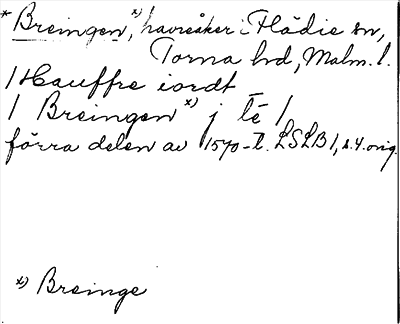 * Breingen, x) havreåker i Flädie sn,
Torna hd, Malm. l.
/ Hauffre iordt
/ Breingen x) j té /
förra delen av 1570-t. LSLB 1, s. 4. orig.
x) Breinge